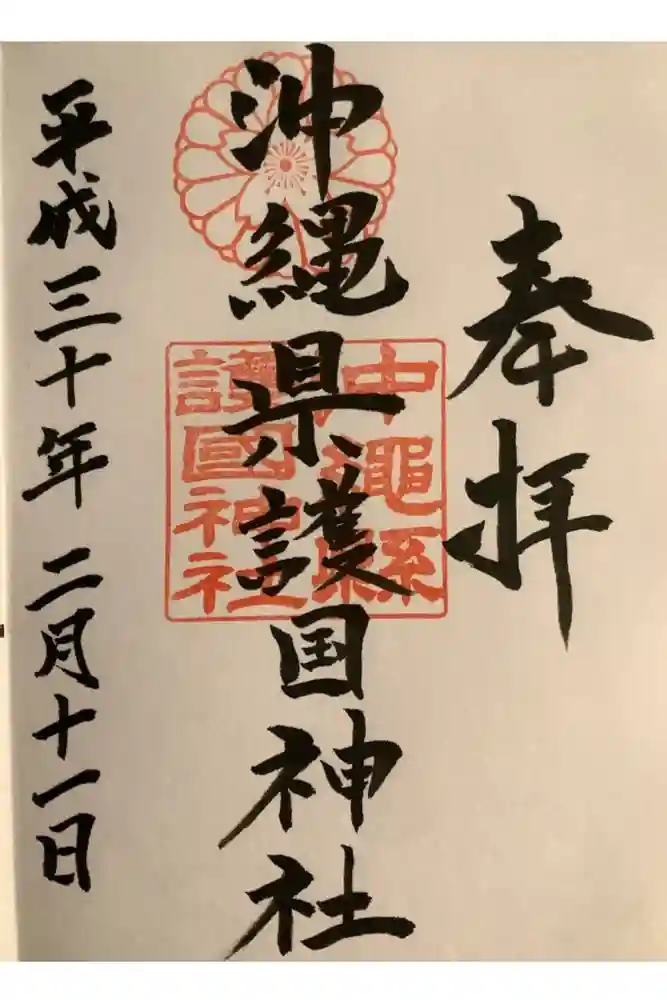 奉拝
沖縄県護国神社
沖縄縣
護國神社
平成三十年 二月十一日